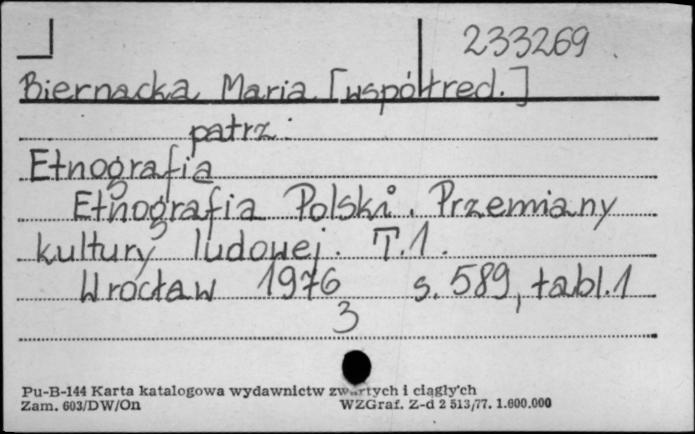 233269
Biernacka Maria [współred.]
patrz:
Etnografia
Etnografia Polski. Przemiany
kultury ludowej. T.1.
Wrocław 1976 s. 589, tabl.1
3
Pu-B-144 Karta katalogowa wydawnictw zwartych i ciągłych
Zam. 603/DW/On WZGraf. Z-d 2 513/77. 1.600.000